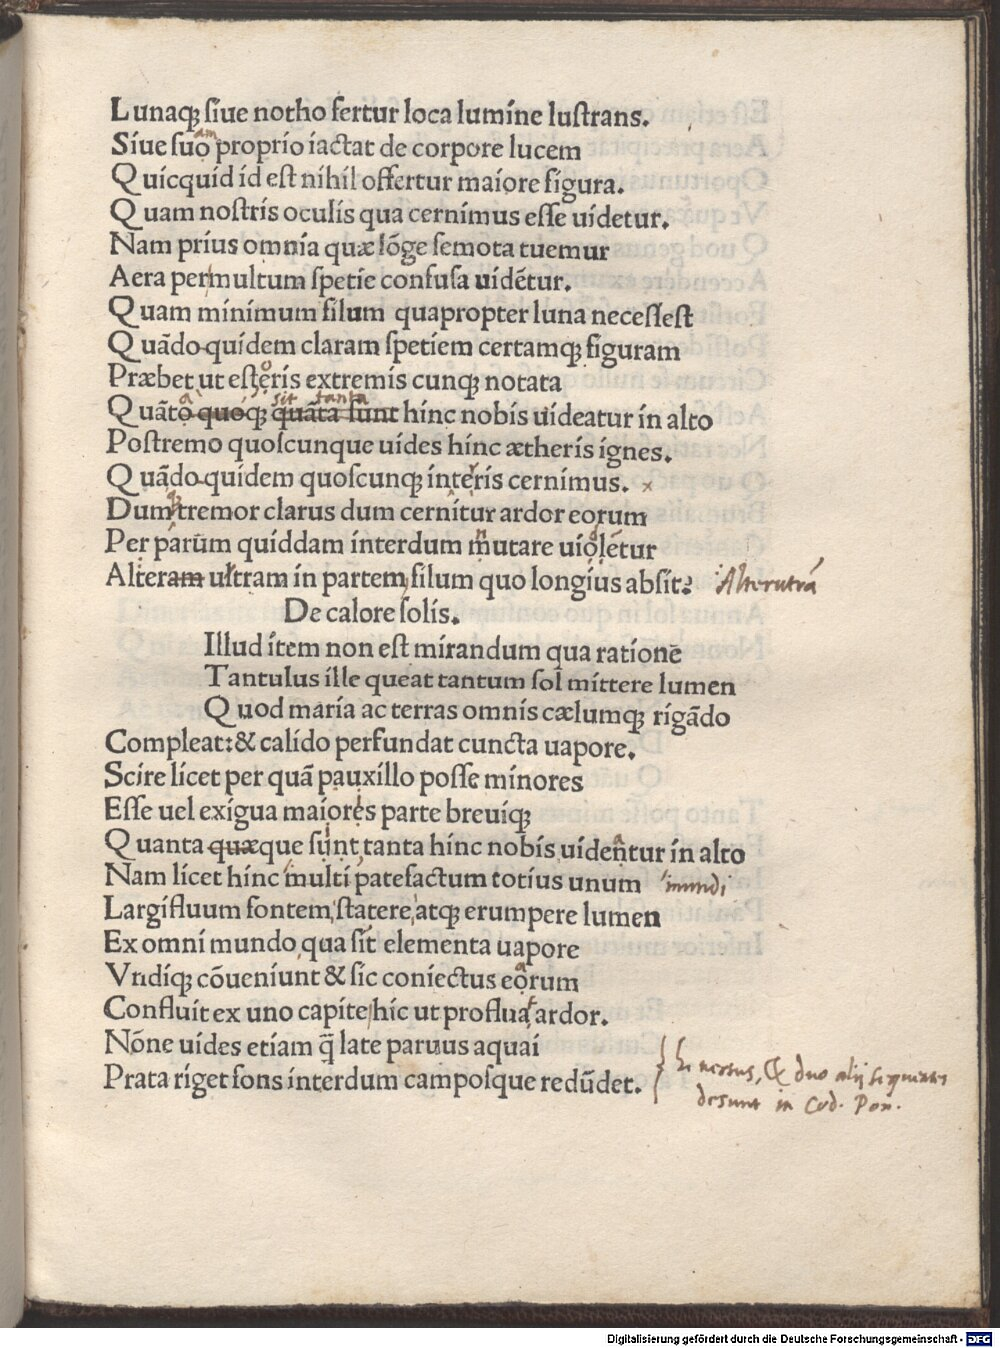 Lunaqꝫ siue notho fertur loca lumine lustrans.
am
Siue suo proprio iactat de corpore lucem
Quicquid id est nihil offertur maiore figura.
Quam nostris oculis qua cernimus esse uidetur.
Nam prius omnia quæ lõge semota tuemur
Aera per multum spetie confusa uidẽtur.
Quam minimum filum quapropter luna necesȷest
Quãdo quidem claram spetiem certamqꝫ figuram
o
Præbet ut esteris extremis cunqꝫ notata
a sit tanta
Quãto quoqꝫ quãta sunt hinc nobis uideatur in alto
Postremo quoscunque uides hinc ætheris ignes.
Quãdo quidem quoscunqꝫ interis cernimus. ×
qꝫ
Dum tremor clarus dum cernitur ardor eorum
n d
Per parũm quiddam interdum mutare uiolẽtur
Alteram ultram in partem filum quo longius absit? Alterutrã
De calore solis.
Illud item non est mirandum qua ratione
Tantulus ille queat tantum sol mittere lumen
Quod maria ac terras omnis cælumqꝫ rigãdo
Compleat: & calido perfundat cuncta uapore.
Scire licet per quã pauxillo posse minores
Esse uel exigua maiores parte breuiqꝫ
Quanta quæque sunt tanta hinc nobis uidentur in alto
Nam licet hinc multi patefactum totius unum mundi
Largifluum fontem statere atqꝫ erumpere lumen
Ex omni mundo qua sit elementa uapore
a
Vndiqꝫ cõueniunt & sic coniectus eorum
t
Confluit ex uno capite hic ut profluat ardor.
Nõne uides etiam q̃ late paruus aquai
Prata riget fons interdum camposque redũdet. hi uersus, & duo alij sequentes
desunt in Cod. Pon.
Digitalisierung gefördert durch die Deutsche Forschungsgemeinschaft - DFG